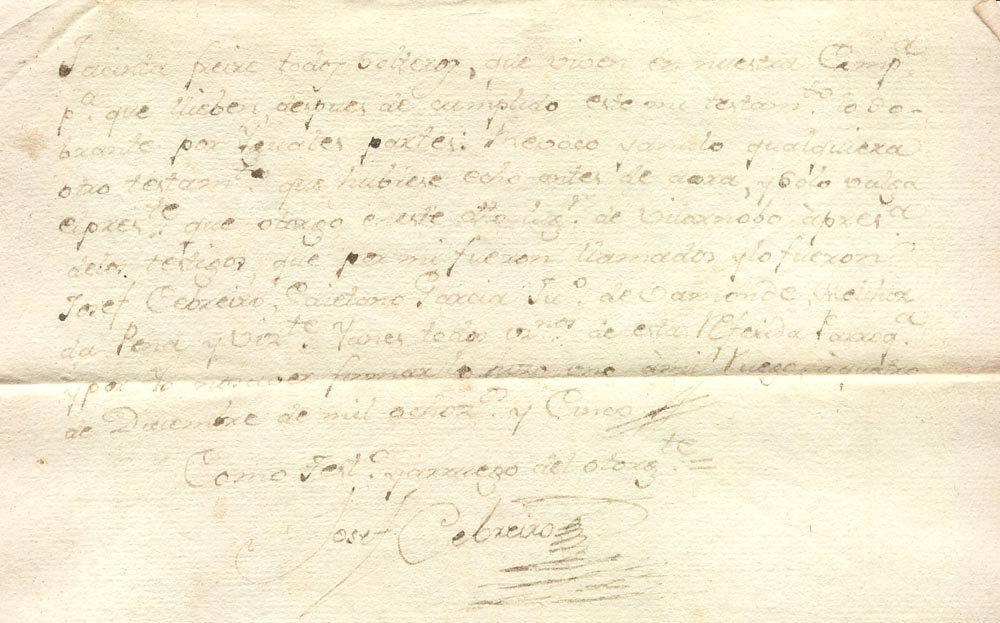 Jacinta freire todos solteros, que viven en nuestra Comp.ª
p.ª que lleben, despues de cumplido este mi testam.to lo so-
brante por Yguales partes: Revoco yanulo qualquiera
otro testam.to que hubiese echo antes de aora, y Sólo valga
epres.te que otorgo eneste dho lug.r de Vilarnobo àpres.ª
delos testigos, que por mi fueron llamados ylo fueron
Josef Cebreiro, Caietano Garcia de Vamonde, Melchor
da Pena y Viz.te Yanes todos vz.nos de esta Referida Parroq.ª
ypor Yo no saver firmar àmi Ruego àquatro
de Diciembre de mil ochoz.s y Cinco
Como Test.o yarruego del otorg.te =
Josef Cebreiro